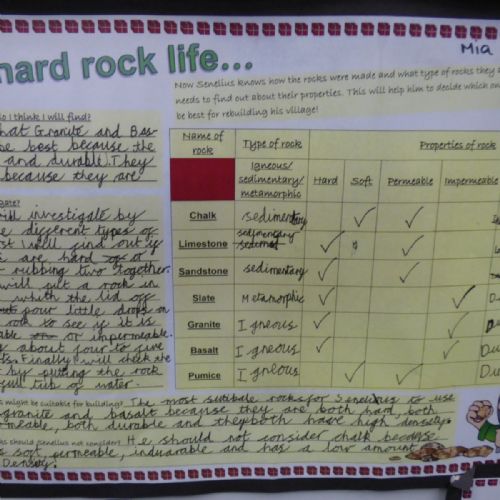 Mia
hard rock life...
Now Senelius knows how the rocks were made and what type of rocks they
needs to find out about their properties. This will help him to decide which
be best for rebuilding his village!
o I think I will find?
hat Granite and Bas-
e best because the
and durable. They
because they are
gate?
will investigate by
e different types of
st I will find out if
s are hard or
rubbing two together.
will put a rock in
with the lid off
pour little drops on
rock to see if it is
able or impermeable.
about four to five
Finally I will check the
by putting the rock
full tub of water.
Name of rock Type of rock Properties of rock
Igneous/ sedimentary/ metamorphic Hard Soft Permeable Impermeable
Chalk sedimentary ✓ ✓
Limestone sedimentary ✓ ✓
Sandstone sedimentary ✓ ✓
Slate Metamorphic ✓ ✓ Du
Granite Igneous ✓ ✓ Du
Basalt Igneous ✓ ✓ Du
Pumice Igneous ✓ ✓
s might be suitable for building? The most sutibale rocks for Senelius to use
granite and basalt because they are both hard, both
meable, both durable and they both have high densety.
ks should Senelius not consider? He should not consider chalk because
s soft, permeable, indurable and has a low amount
Density.